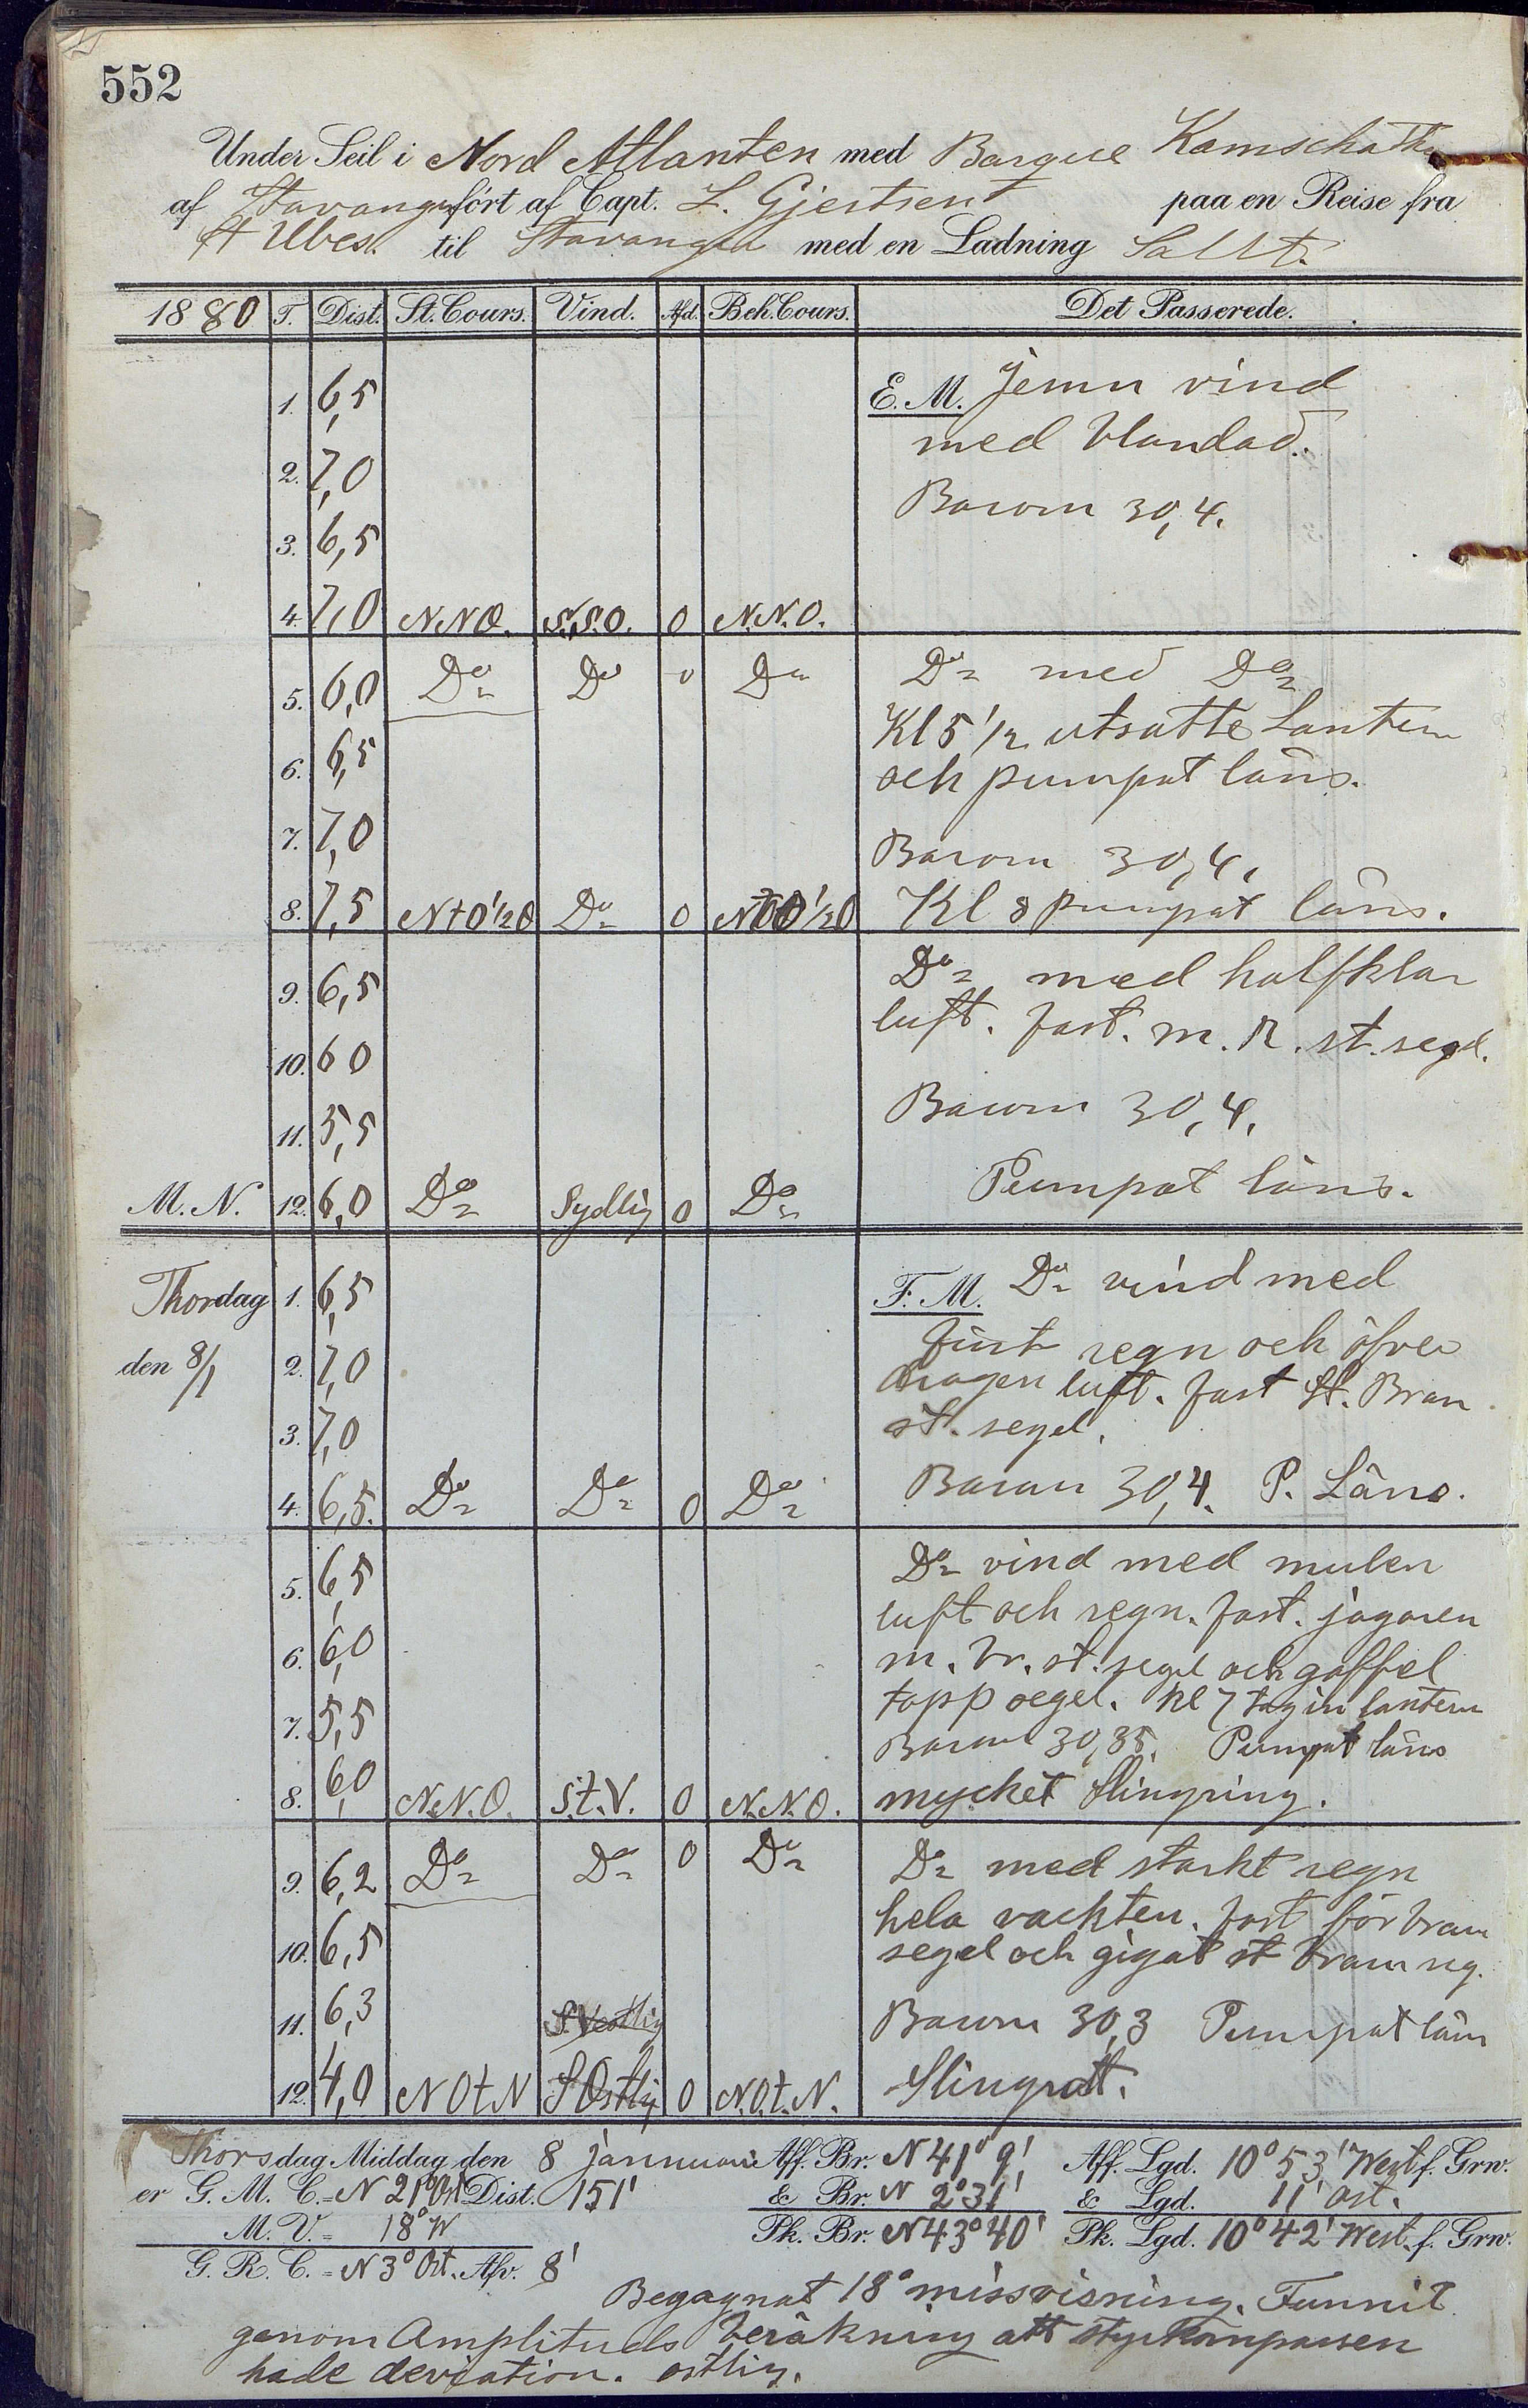 552
Under Seil i Nord Atlanten med Barque Kamschatka
af Stavanger fört af Capt. L. Gjertsen paa en Reise fra
St Ubes til Stavanger med en Ladning Salt.
1880 T. Dist. St. Cours. Vind. Afd. Beh. Cours. Det Passerede.
1. 6,5 E. M. Jemn vind
med blandad.
2. 7,0
Barom 30,4.
3. 6,5
4. 7,0 N.N.O. S.S.O. 0 N.N.O.
5. 6,0 Do Do 0 Do Do med Do
Kl 5 1/2 utsatte Lantern
6. 6,5 och pumpat läns.
7. 7,0
Barom 30,4.
8. 7,5 N t O 1/2 O Do 0 N t O 1/2 O Kl 8 pumpat läns.
9. 6,5 Do med halfklar
luft. fast. m. R. st. segel.
10. 6 0
Barom 30,4.
11. 5,5
M. N. 12. 6,0 Do Sydlig 0 Do Pumpat läns.
Thordag 1. 6,5 F. M. Do vind med
fint regn och öfver
den 8/1 2. 7,0 dragen luft. fast St. Bram
3. 7,0 st. segel.
4. 6,5. Do Do 0 Do Barom 30,4. P. Läns.
5. 6,5 Do vind med mulen
luft och regn. fast. jagaren
6. 6,0 m. br. st. segel och gaffel
topp segel. Kl 7 tag in lantern
7. 5,5 Barom 30,35. Pumpat läns
8. 6,0 N.N.O. S.t.V. 0 N.N.O. mycket Slingring.
9. 6,2 Do Do 0 Do Do med starkt regn
hela vackten. fast för bram
10. 6,5 segel och gigat st bram seg.
11. 6,3 S. Vestlig Barom 30,3 Pumpat läns
12. 4,0 N O t N S Ostlig 0 N.O.t.N. Slingratt.
Thorsdag Middag den 8 januari Aff. Br. N 41° 9' Aff. Lgd. 10° 53' West f. Grw.
er G. M. C. = N 21° Ost Dist. 151' & Br. N 2° 31' & Lgd. 11' Ost.
M. V. = 18° W Pk. Br. N 43° 40' Pk. Lgd. 10° 42' West. f. Grw.
G. R. C. = N 3° Ost. Afv. 8'
Begagnat 18° missvisning. Funnit
genom Amplituds beräkning att styrkompassen
hade deviation. ostlig.